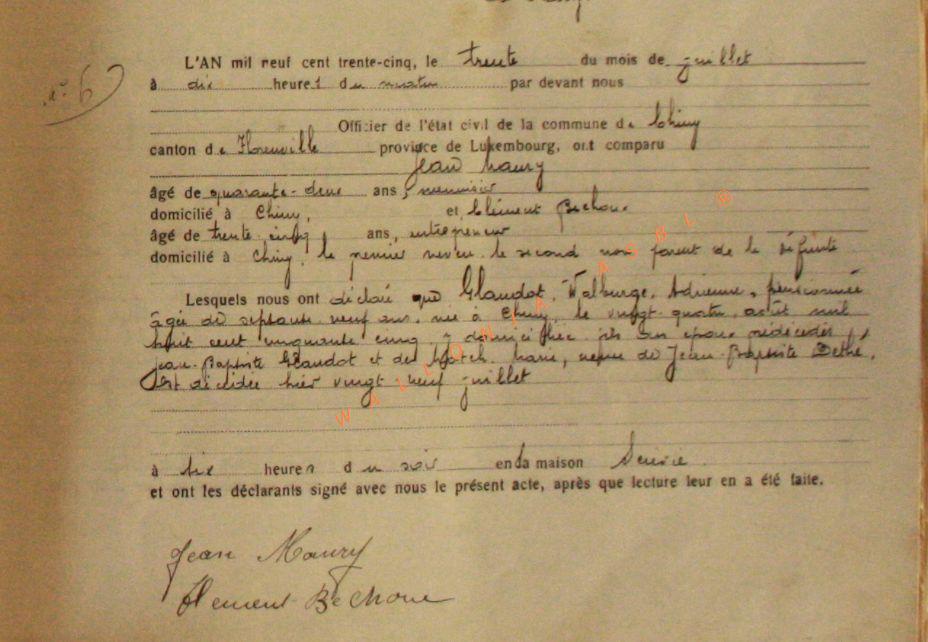 n° 6
L'AN mil neuf cent trente-cinq, le trente du mois de juillet
à dix heures du matin par devant nous
Officier de l'état civil de la commune de Chiny
canton de Florenville province de Luxembourg, ont comparu
Jean Maury
âgé de quarante-deux ans, menuisier
domicilié à Chiny, et Clément Bechoux
âgé de trente cinq ans, entrepreneur
domicilié à Chiny, le premier neveu le second non parent de la défunte
Lesquels nous ont déclaré que Glaudot, Walburge, Adrienne, pensionnée
âgée de septante neuf ans, née à Chiny, le vingt-quatre août mil
huit cent cinquante cinq, y domiciliée, des époux prédécédés
Jean-Baptiste Glaudot et de Marie, veuve de Jean-Baptiste Dethé,
est décédée hier vingt-neuf juillet
à dix heures du soir en sa maison
et ont les déclarants signé avec nous le présent acte, après que lecture leur en a été faite.
Jean Maury
Clement Bechoux
WALLONIA ASBL ®